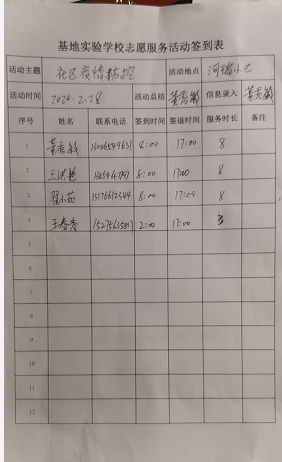 基地实验学校志愿服务活动签到表
活动主题 社区疫情防控 活动地点 河瑞小区
活动时间 2020.2.28 活动总结 董秀敏 信息录入 董秀敏
序号 姓名 联系电话 签到时间 签退时间 服务时长 备注
1 董秀敏 8:00 17:00 8
2 8:00 17:00 8
3 8:00 17:00 8
4 王春香 2:00 17:00 3
5
6
7
8
9
10
11
12